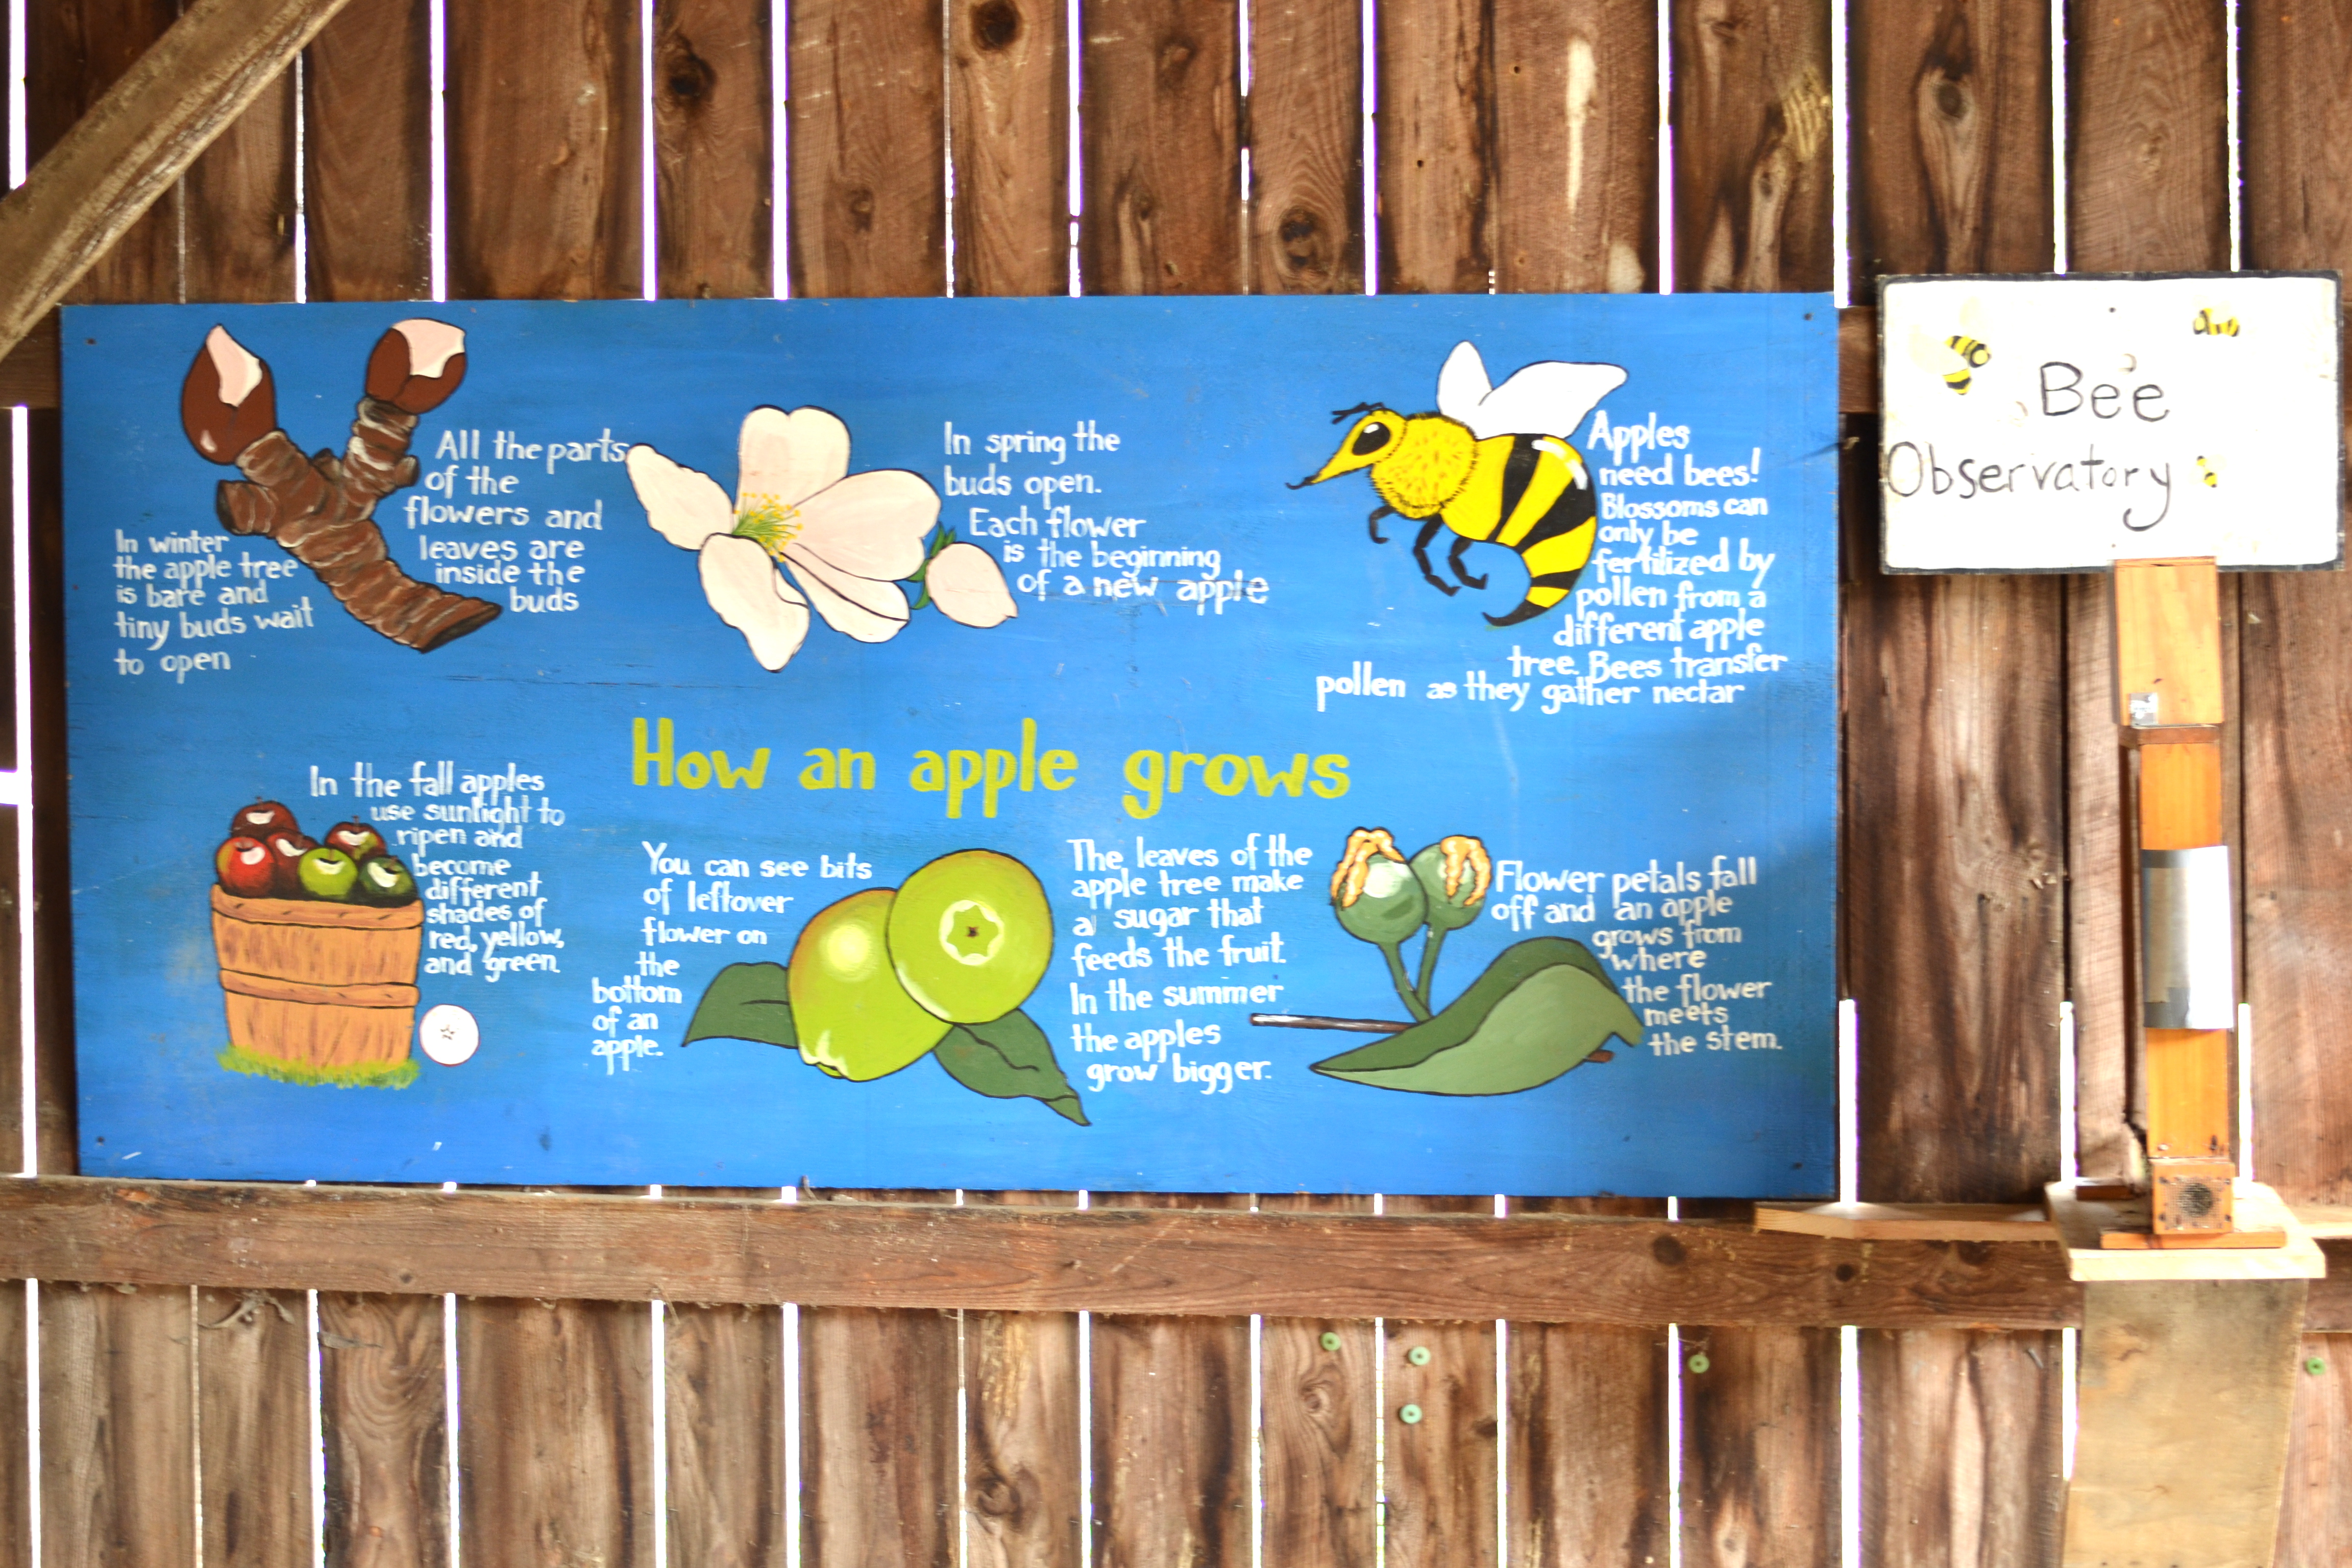 In winter
the apple tree
is bare and
tiny buds wait
to open
All the parts
of the
flowers and
leaves are
inside the
buds
In spring the
buds open.
Each flower
is the beginning
of a new apple
Apples
need bees!
Blossoms can
only be
fertilized by
pollen from a
different apple
tree. Bees transfer
pollen as they gather nectar
How an apple grows
In the fall apples
use sunlight to
ripen and
become
different
shades of
red, yellow,
and green.
You can see bits
of leftover
flower on
the
bottom
of an
apple.
The leaves of the
apple tree make
a sugar that
feeds the fruit.
In the summer
the apples
grow bigger.
Flower petals fall
off and an apple
grows from
where
the flower
meets
the stem.
Bee
Observatory